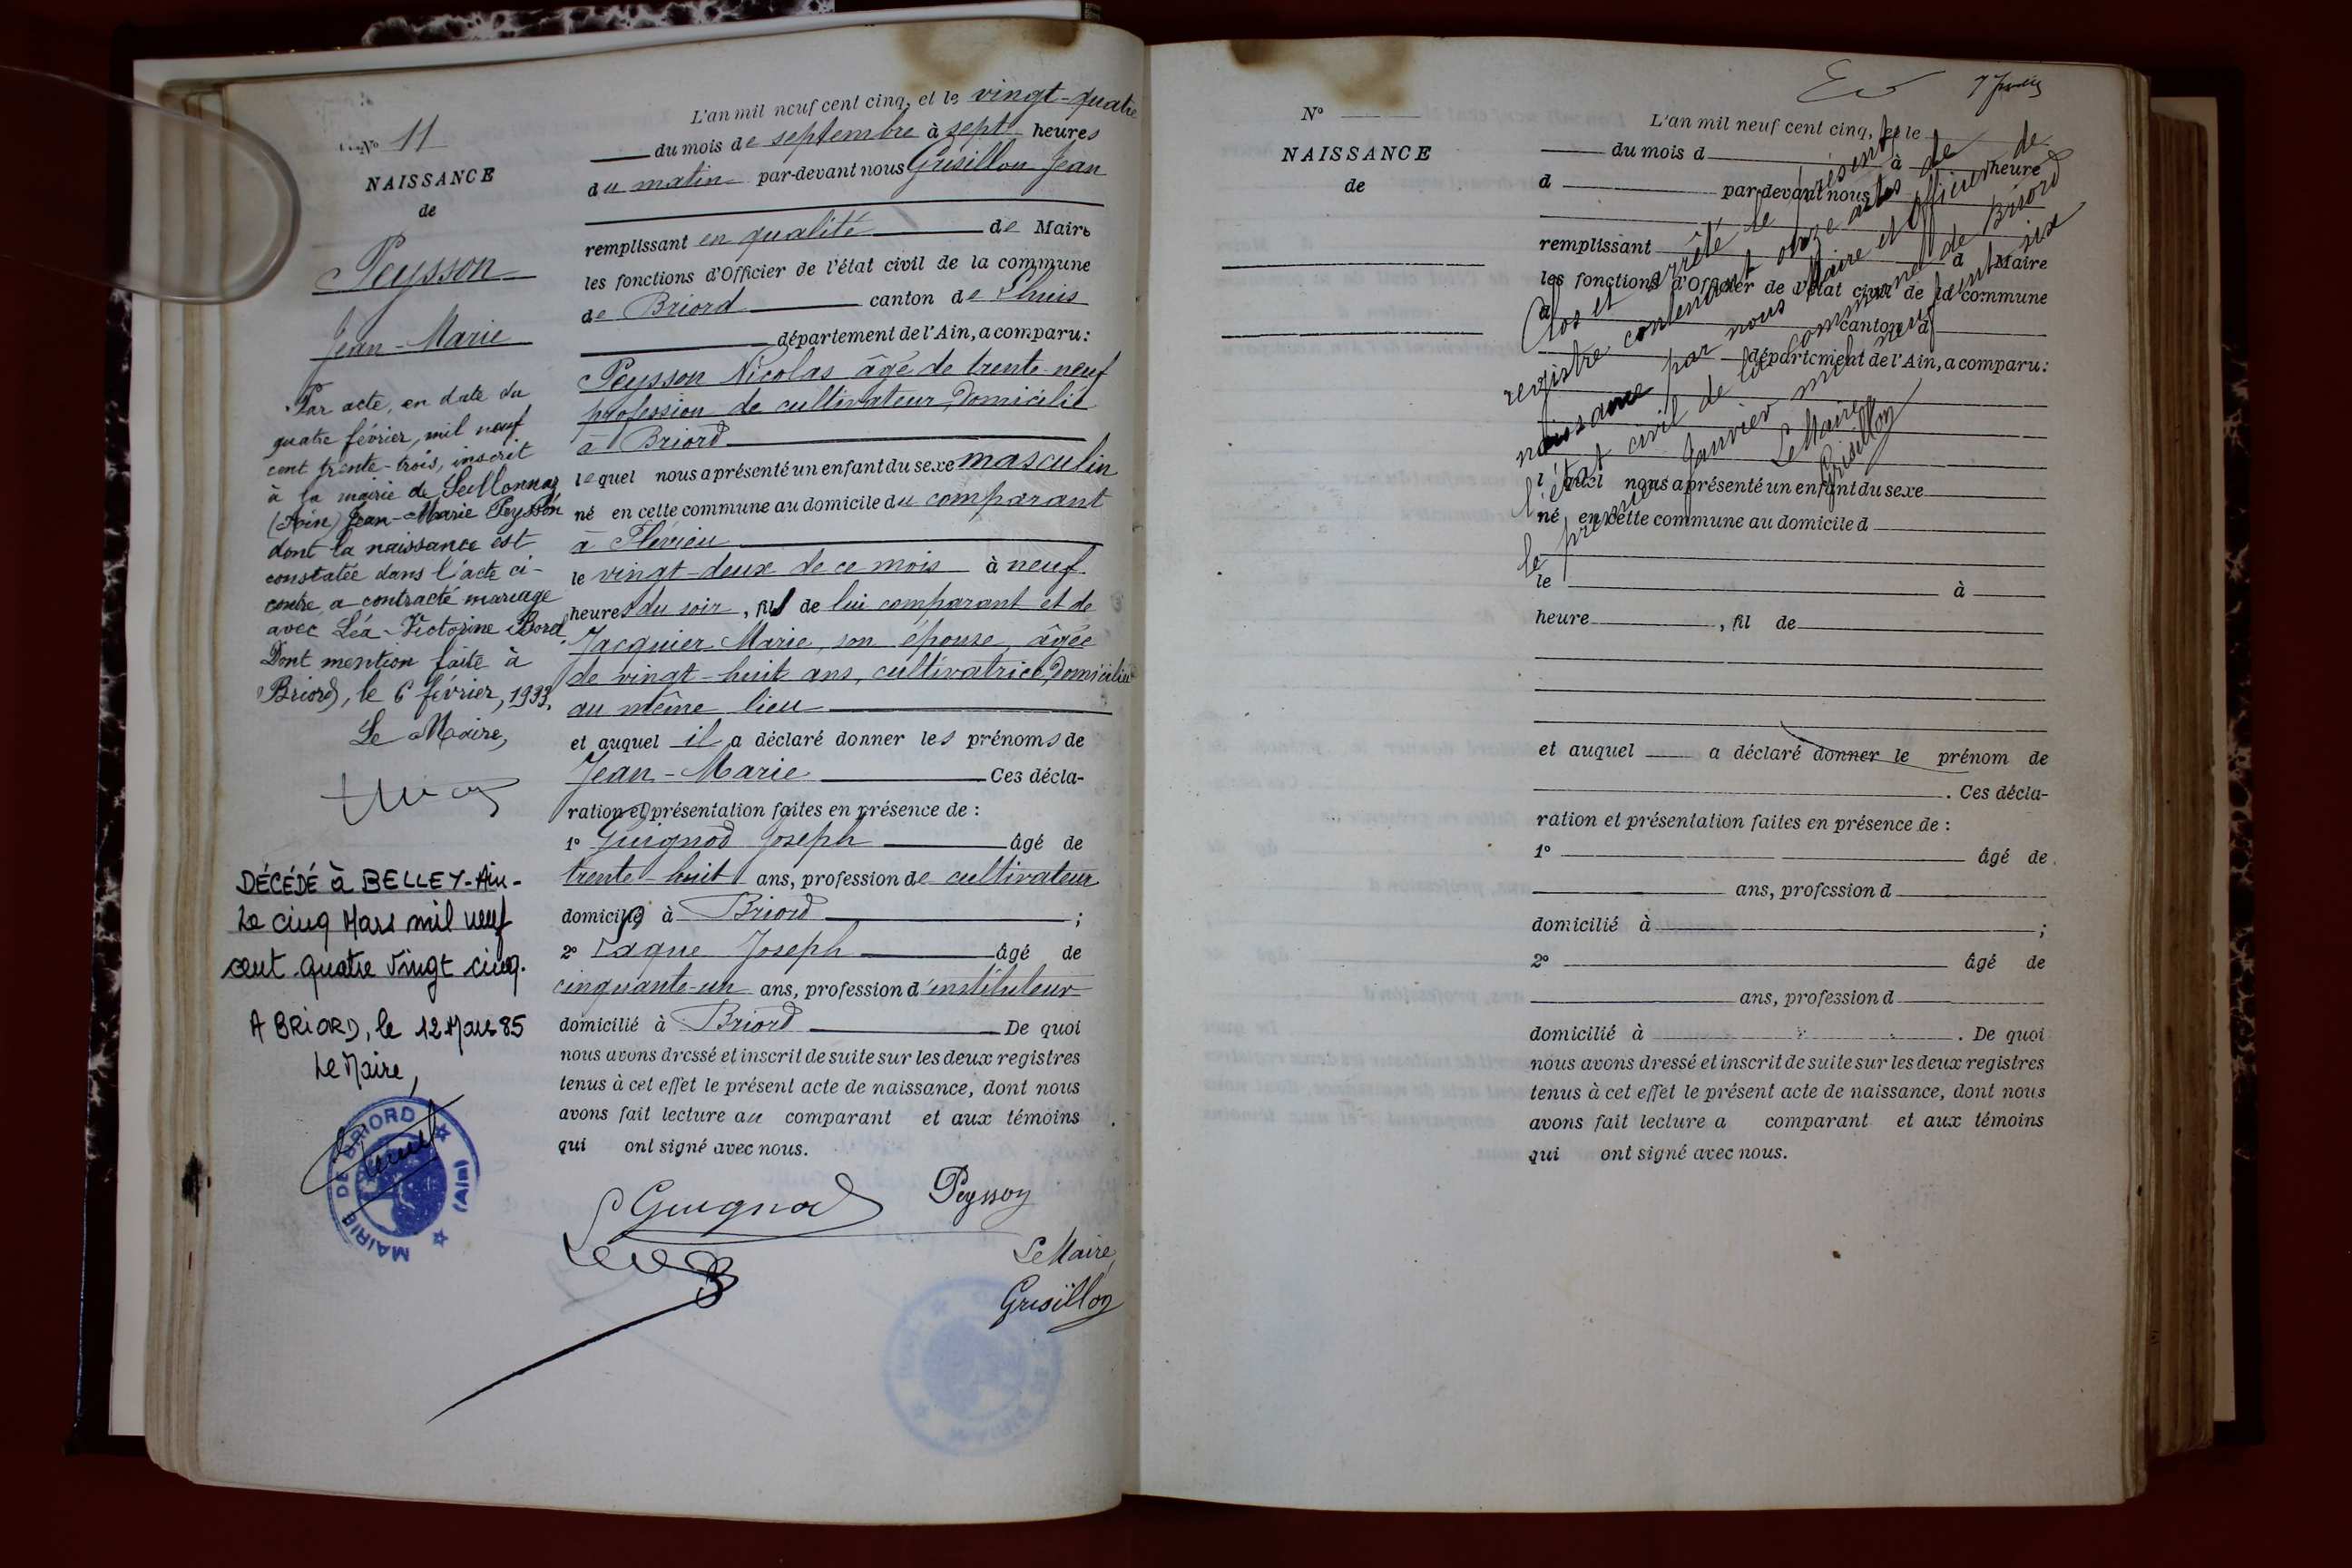 N° 11
NAISSANCE
de
Peysson
Jean-Marie
Par acte, en date du
quatre février, mil neuf
cent trente-trois, inscrit
à la mairie de Seillonnaz
(Ain) Jean-Marie Peysson
dont la naissance est
constatée dans l'acte ci-
contre, a contracté mariage
avec Léa-Victorine Bord
Dont mention faite à
Briord, le 6 février, 1933,
Le Maire,
DÉCÉDÉ à BELLEY-Ain-
Le cinq Mars mil neuf
cent quatre vingt cinq.
A BRIORD, le 12 Mars 85
Le Maire,
MAIRIE DE BRIORD (Ain)
L'an mil neuf cent cinq, et le vingt-quatre
du mois de septembre à sept heures
du matin par-devant nous Grisillon Jean
remplissant en qualité de Maire
les fonctions d'Officier de l'état civil de la commune
de Briord canton de Lhuis
département de l'Ain, a comparu:
Peysson Nicolas âgé de trente-neuf
profession de cultivateur, domicilié
à Briord
lequel nous a présenté un enfant du sexe masculin
né en cette commune au domicile du comparant
à Flévieu
le vingt-deux de ce mois à neuf
heures du soir, fils de lui comparant et de
Jacquier Marie, son épouse, âgée
de vingt-huit ans, cultivatrice, domiciliée
au même lieu
et auquel il a déclaré donner les prénoms de
Jean-Marie Ces décla-
ration et présentation faites en présence de :
1° Guignod Joseph âgé de
trente-huit ans, profession de cultivateur
domicilié à Briord ;
2° Joseph âgé de
cinquante-un ans, profession d'instituteur
domicilié à Briord De quoi
nous avons dressé et inscrit de suite sur les deux registres
tenus à cet effet le présent acte de naissance, dont nous
avons fait lecture au comparant et aux témoins
qui ont signé avec nous.
Guignod Peysson
Le Maire,
Grisillon
N°
NAISSANCE
de
L'an mil neuf cent cinq, et le
du mois d à heure
d par-devant nous
remplissant d Maire
les fonctions d'Officier de l'état civil de la commune
d canton d
département de l'Ain, a comparu:
lequel nous a présenté un enfant du sexe
né en cette commune au domicile d
le à
heure , fil de
et auquel a déclaré donner le prénom de
. Ces décla-
ration et présentation faites en présence de :
1° âgé de
ans, profession d
domicilié à ;
2° âgé de
ans, profession d
domicilié à . De quoi
nous avons dressé et inscrit de suite sur les deux registres
tenus à cet effet le présent acte de naissance, dont nous
avons fait lecture a comparant et aux témoins
qui ont signé avec nous.
Clos et arrêté le présent
registre contenant onze actes de
naissance par nous Maire et Officier de
l'état civil de la commune de Briord
le premier Janvier mil neuf cent six
Le Maire
Grisillon